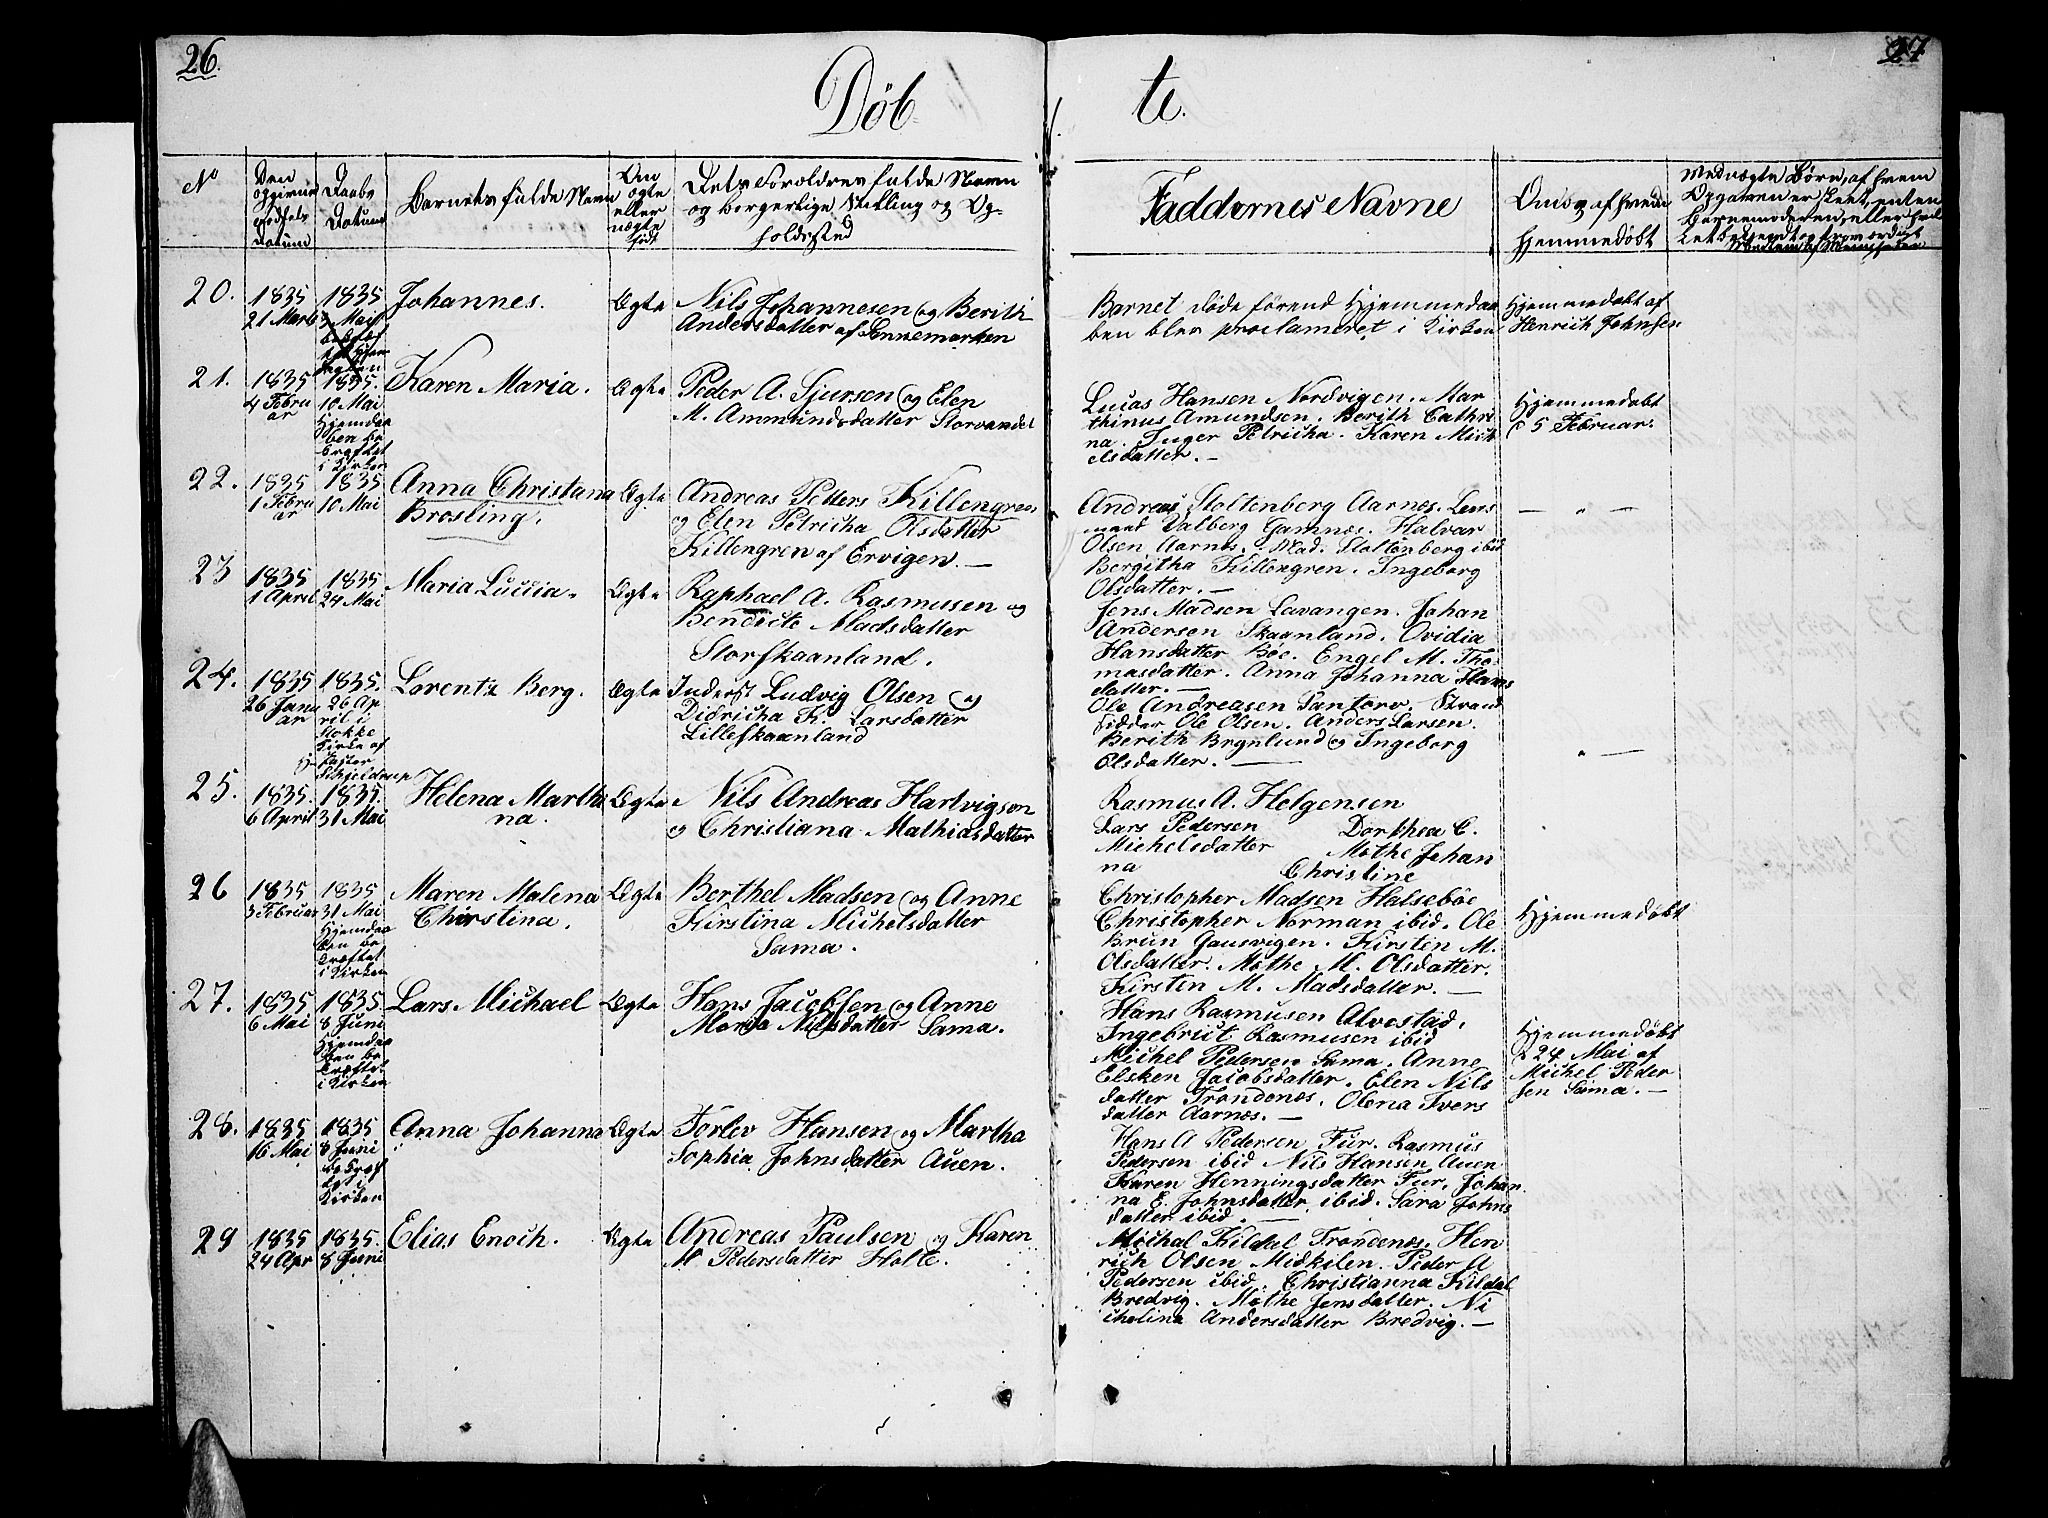 26.
27
Döb
te.
No
Den opgivne Fødsels Datum
Daabs Datum
Barnets fulde Navn
Om ægte eller uægte født
Dets Forældres fulde Navn og borgerlige Stilling og Opholdssted
Faddernes Navne
Om og af hvem Hjemmedøbt
Ved uægte Børn, af hvem
Opgaven er skeet, enten
Barnemoderen, eller
20.
1835
21 Marts
1835
3 Mai
Johannes.
Ægte
Nils Johannesen og Berith
Andersdatter af Sennemarken
Barnet døde förend Hjemmedaa
ben blev proclameret i Kirken
Hjemmedøbt af
Henrich Johnsen
21.
1835
4 Febru
ar
1835.
10 Mai
Hjemdaa
ben be
kræftet
i Kirken
Karen Maria.
Ægte
Peder A. Sjursen og Elen
M. Ammundsdatter Storvandet
Lucas Hansen Nordvigen. Mar
thinus Amundsen. Berith Cathri
na. Inger Petricha. Karen Mich
elsdatter. —
Hjemmedøbt
d 5 Februar.
22.
1835
1 Febru
ar
1835
10 Mai
Anna Christana
Brosling.
Ægte
Andreas Petters Killengreen
og Elen Petricha Olsdatter
Killengren af Ervigen. —
Andreas Stoltenberg Aarnes. Lens
mand Valberg Gamnes. Halvar
Olsen Aarnes. Mad. Stoltenberg ibid
Bergitha Killengren. Ingeborg
Olsdatter. —
— " —
23
1835
1 April
1835
24 Mai
Maria Luccia.
Ægte
Raphael A. Rasmusen og
Bendicte Madsdatter
Storskaanland.
Jens Madsen Lavangen. Johan
Andersen Skaanland. Ovidia
Hansdatter Böe. Engel M. Tho
masdatter. Anna Johanna Hans
datter. —
24.
1835
26 Janu
ar
1835.
26 Ap
ril i
Kirke af
Hr Pastor
Schjelderup
Lorentz Berg.
Ægte
Inderst Ludvig Olsen og
Didricha K. Larsdatter
Lilleskaanland
Ole Andreasen Santorv. Strand
sidder Ole Olsen. Anders Larsen.
Berith Brynlund og Ingeborg
Olsdatter. —
" —
25.
1835.
6 April
1835.
31 Mai
Helena Marthi
na.
Ægte
Nils Andreas Hartvigsen
og Christiana Mathiasdatter
Rasmus A. Helgensen
Lars Pedersen Dorthea C.
Michelsdatter Mathe Johan
na Christine
26
1835
3 Februar
1835
31 Mai
Hjemdaa
ben be
kræftet
i Kirken
Maren Malena
Chirstina.
Ægte
Berthel Madsen og Anne
Kirstina Michelsdatter
Sama.
Christopher Madsen Halsebøe
Christopher Norman ibid. Ole
Brun Gausvigen. Kirsten M.
Olsdatter. Mathe M. Olsdatter.
Kirsten M. Madsdatter. —
Hjemmedøbt
27.
1835
6 Mai
1835.
8 Juni
Hjemdaa
ben be
kræftet
i Kirken
Lars Michael
Ægte
Hans Jacobsen og Anne
Marja Nilsdatter Sama.
Hans Rasmusen Alvestad.
Ingebriit Rasmusen ibid
Michel Pedersen Sama. Anne
Elsken Jacobsdatter. Elen Nils
datter Trondenæs. Olena Ivers
datter Aarnes. —
Hjemmedøbt
d 24 Mai af
Michel Peder
sen Sama. —
28.
1835
16 Mai
1835
8 Juni
i
Kirken
Anna Johanna
Ægte
Torlev Hansen og Martha
Sophia Johnsdatter Auen.
Hans A Pedersen Fur. Rasmus
Pedersen ibid Nils Hansen Auen
Karen Henningsdatter Fur. Johan
na E. Johnsdatter ibid. Sara Johns
datter ibid. —
29
1835
24 Apr
1835.
8 Juni
Elias Enoch.
Ægte
Andreas Paulsen og Karen
M Pedersdatter Holte.
Michal Kildal Trondenæs. Hen
rich Olsen Midkilen. Peder A
Pedersen ibid. Christianna Kildal
Bredvig. Mathe Jensdatter. Ni
cholina Andersdatter Bredvig. —